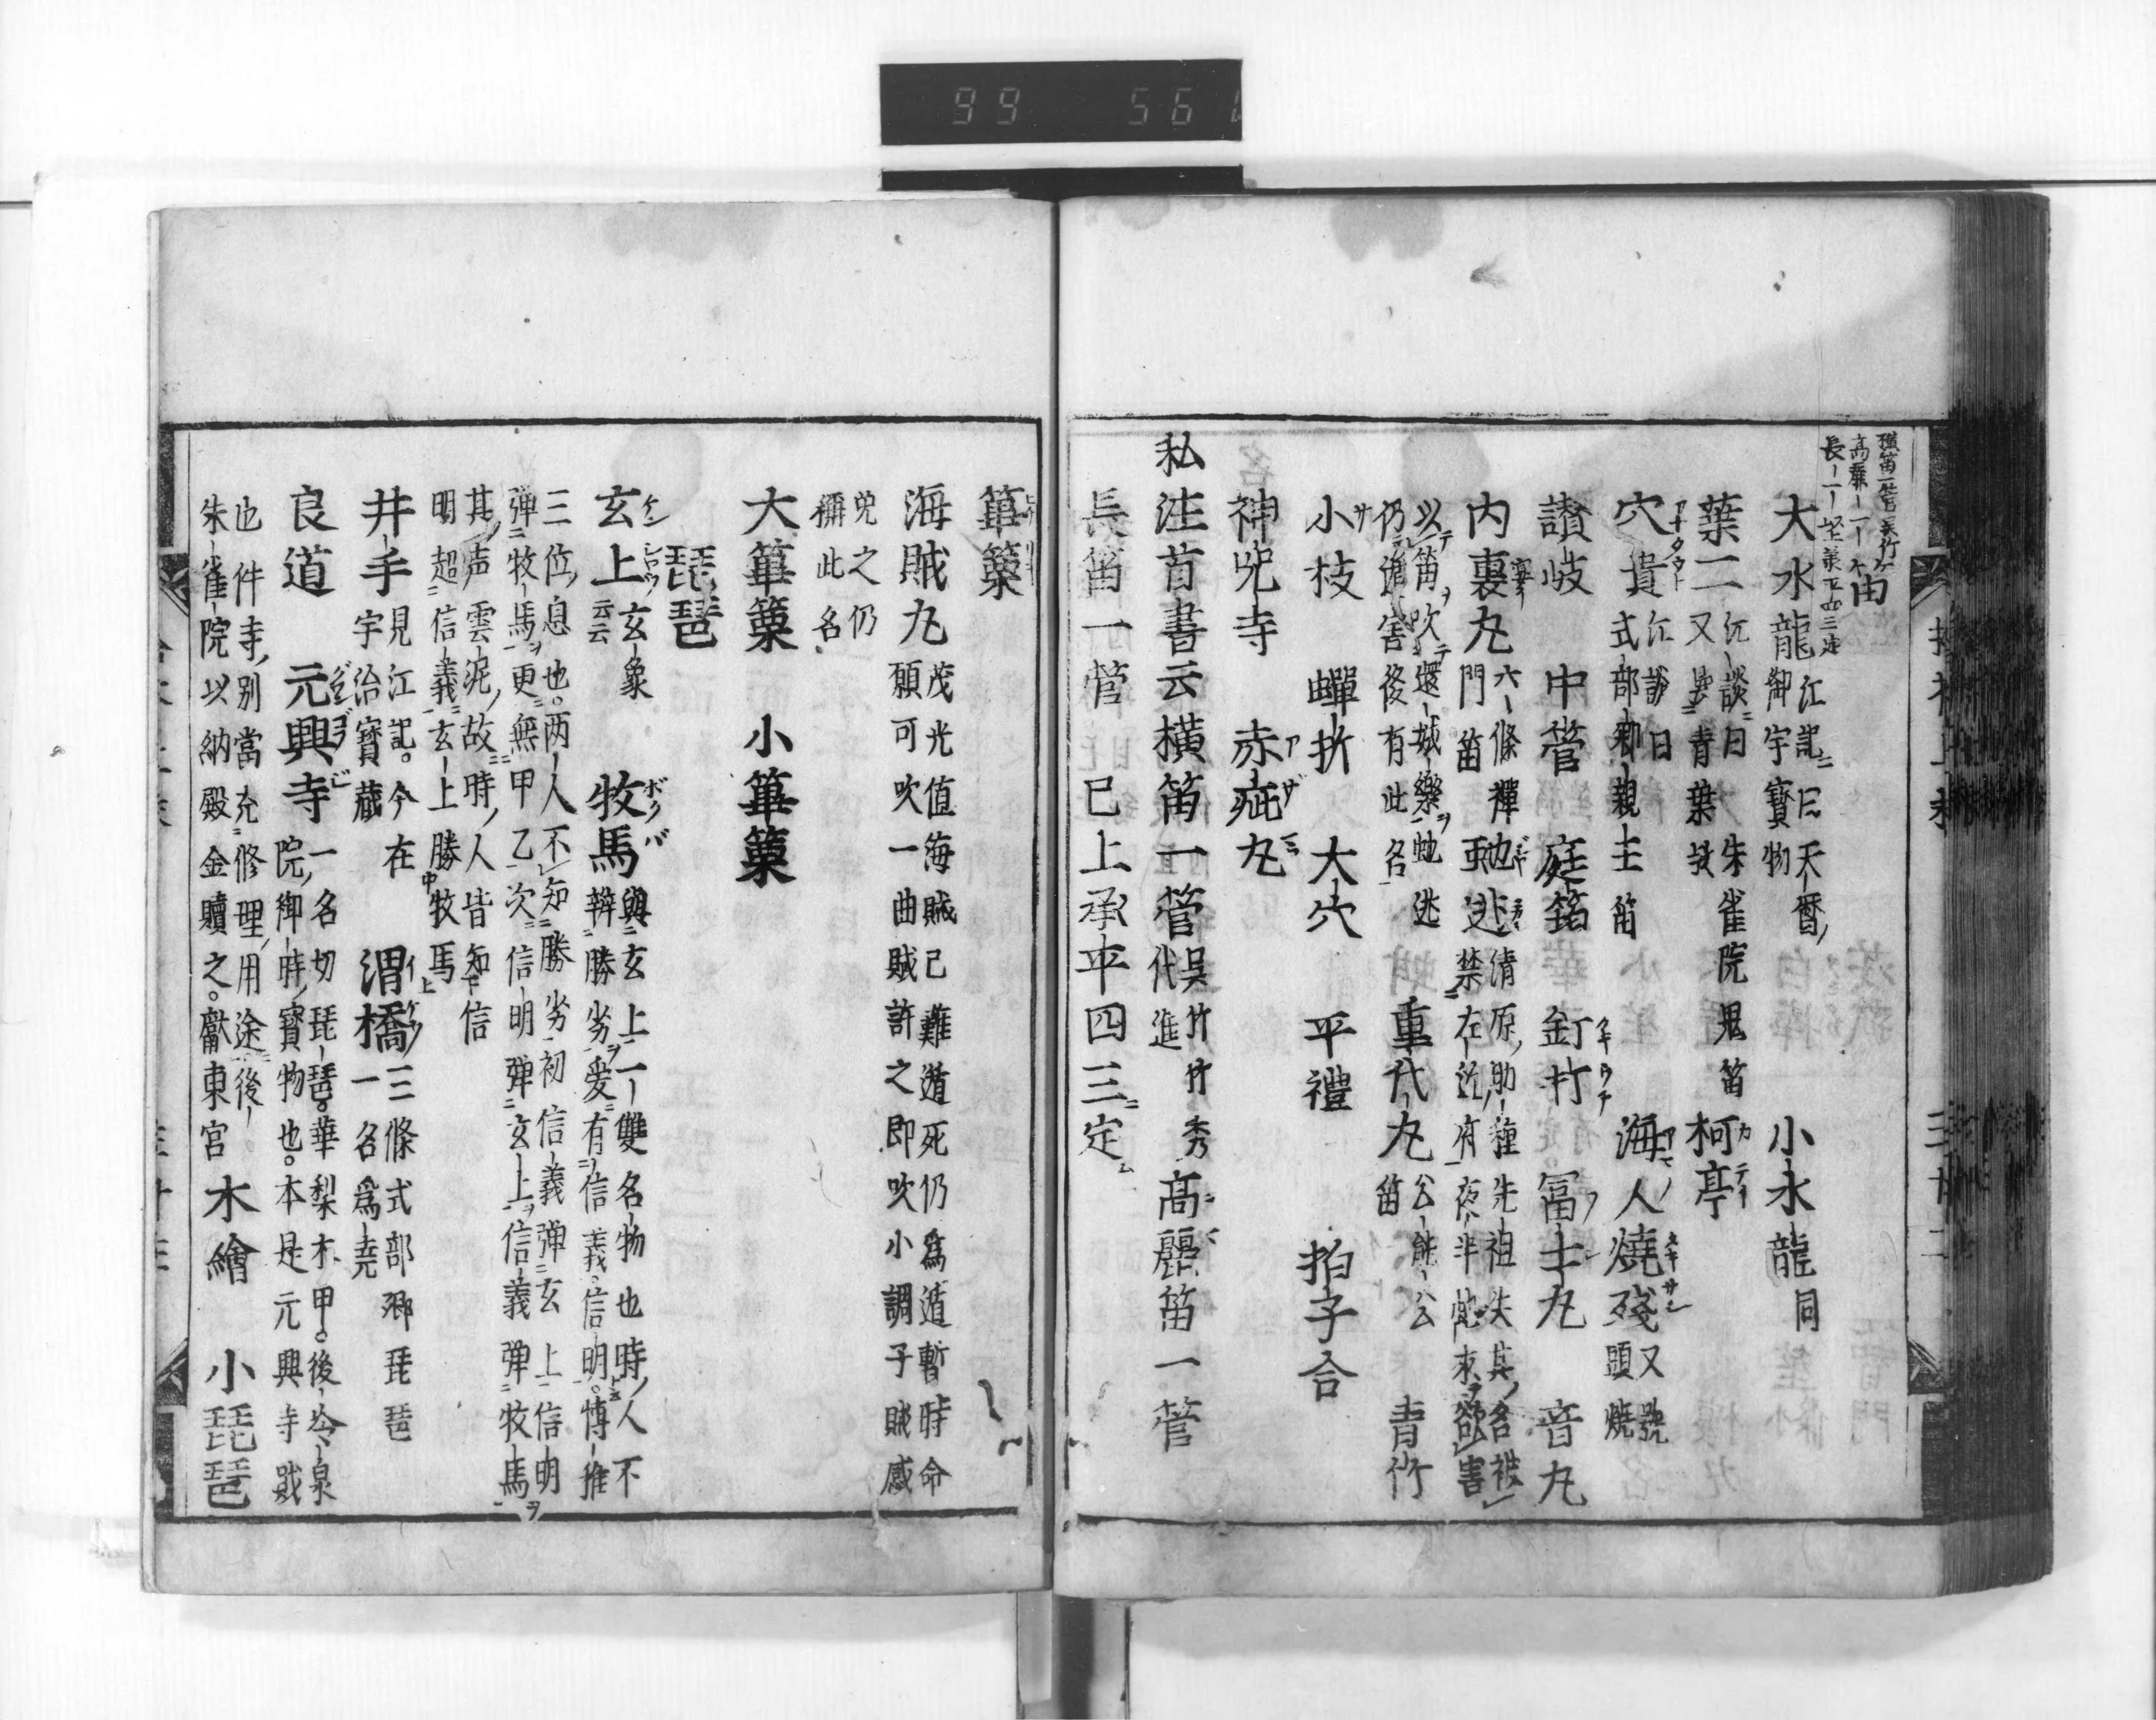 99 561
笛
大水龍 江記ニ曰天暦御宇寶物 小水龍 同
葉二 江談ニ曰朱雀院鬼笛又号青葉 柯亭
穴貴 江談曰式部卿親王笛 海人燒殘 又號頭燒
讃岐 中管 庭筠 釘打 冨士丸 音丸
内裏丸 六條裡門笛 虵逃 清原助種先祖失其名被禁左近府夜半虵來欲害
以笛吹還城樂虵逃仍遁害後有此名 重代丸 公能公笛 青竹
小枝 蟬折 大穴 平禮 拍子合
神咒寺 赤疵丸
私注首書云横笛一管 吳竹竹秀代進 高麗笛一管
長笛一管 已上承平四三定
篳篥
海賊丸 茂光値海賊已難遁死仍爲遁暫時命願可吹一曲賊許之即吹小調子賊感
免之仍稱此名
大篳篥 小篳篥
琵琶
玄上 玄象云云 牧馬 與玄上一雙名物也時人不辨勝劣爰有信義信明博雅
三位息也两人不知勝劣初信義弾玄上信明弾牧馬更無甲乙次信明弾玄上信義弾牧馬
其声雲泥故時人皆知信明超信義玄上勝牧馬
井手 見江記今在宇治寶藏 渭橋 三條式部卿琵琶一名爲堯
良道 元興寺 一名切琵琶華梨木甲後冷泉院御時寶物也本是元興寺戝
也件寺別當充修理用途後朱雀院以納殿金贖之獻東宮 木繪 小琵琶